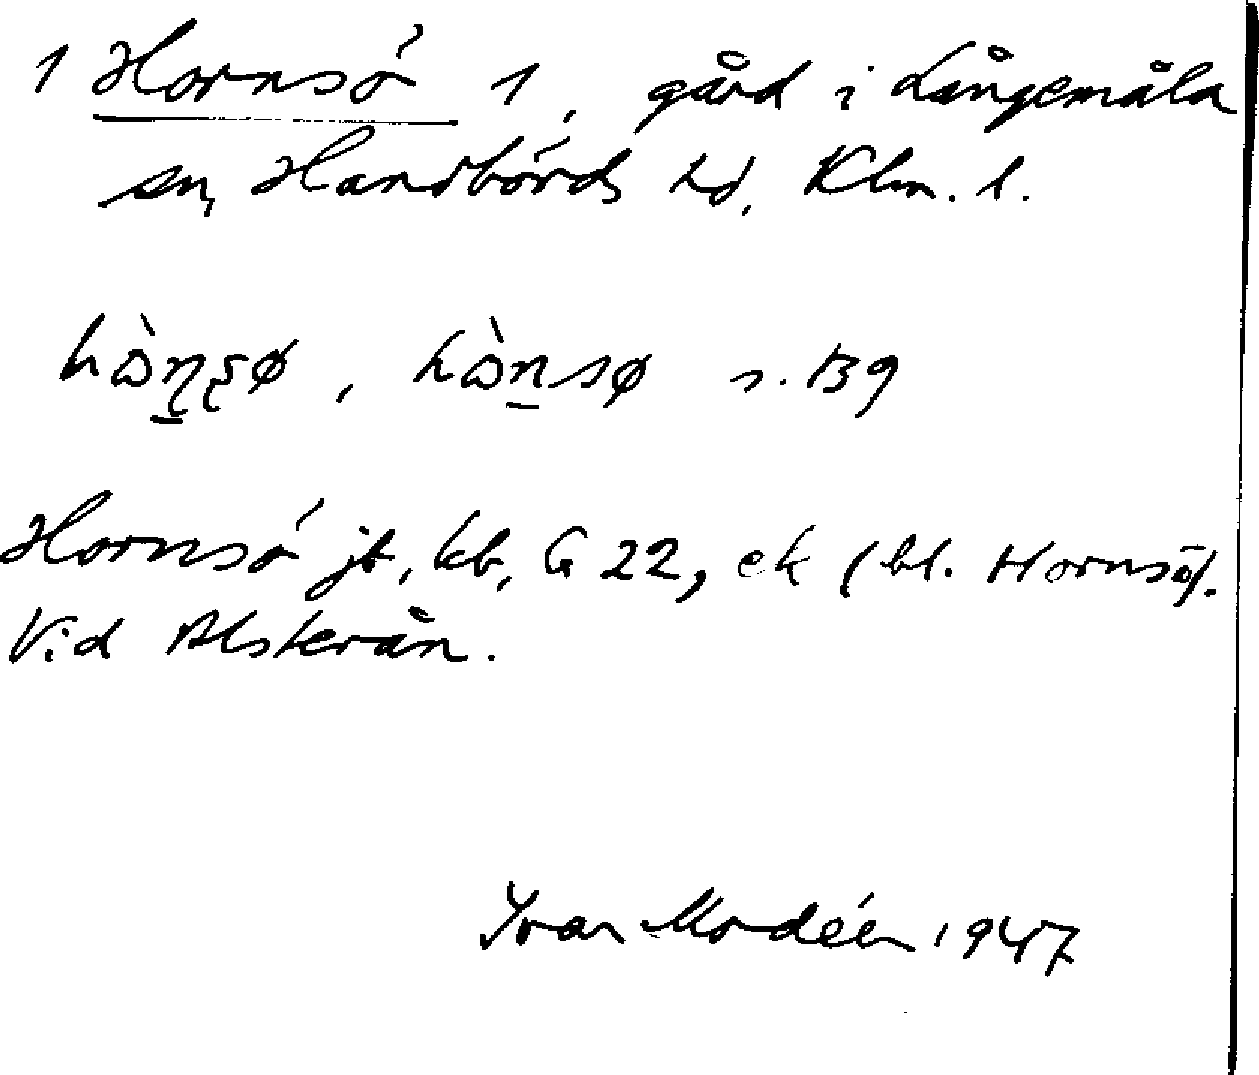 1 Hornsö 1, gård i Långemåla
sn, Handbörds hd, Klm. l.
hɷ̀ṉsø, hɷ̀ṉsø s. 139
Hornsö jb, kb, G 22, ek (bl. Hornsö).
Vid Alsterån.
Ivar Modéer 1947